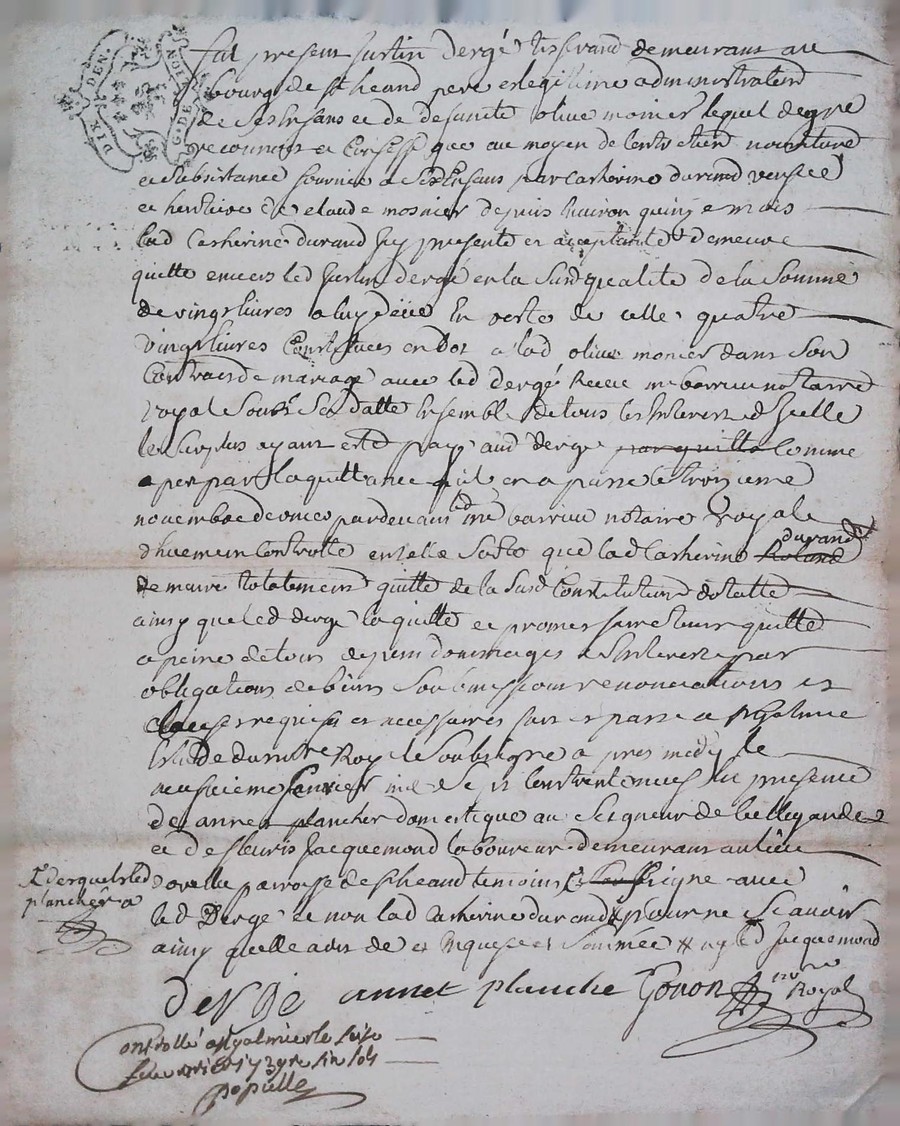 DIX DEN.
G. DE LION
fut present justin dergé tisserand demeurant au
bourg de st heand pere et legitime administrateur
de ses enfans et de defuncte olive monier lequel de gre
reconnoit et confesse que au moyen de lentretien nourriture
et subsistance fournie a ses enfans par catherine durand veufve
et heritiere de claude mosnier depuis environ quinze mois
lad catherine durand icy presente et acceptante demeure
quitte envers led justin dergé en la susd qualité de la somme
de vingt livres a luy deüe en reste de celle quatre
vingt livres constituees en dot a lad olive monier dans son
contract de mariage avec led dergé receu me barrieu notaire
royal sous sa datte ensemble de tous les interests dicelle
le surplus ayant esté payé aud dergé par quitte comme
apert par la quittance quil en a passé le troizieme
novembre pardevant led me barrieu notaire royal
controllé en telle sorte que lad catherine roland
durand
demeure totalement quitte de la susd constitution dotalle
ainsy que led dergé la quitte et promet faire tenir quitte
a peine de tous depens dommages et interests par
obligations de biens soubmissions renonciations et
clauses requises et necessaires fait et passé a st galmier
estude du notaire Roy le soubsigné apres midy le
neufvieme janvier mil sept cent trente neuf en presence
de annet plancher domestique au seigneur de bellegarde
et de fleuris jacquemond laboureur demeurant au lieu
paroisse de st heand temoins signé avec
led Dergé et non lad catherine durand pour ne scavoir
ainsy quelle a dit de ce enquise et sommée ny led jacquemond
desquels led
plancher a
dergé annet planche Gonon
no re
Royal
Controllé a st galmier le
1739 re six sols
popielle